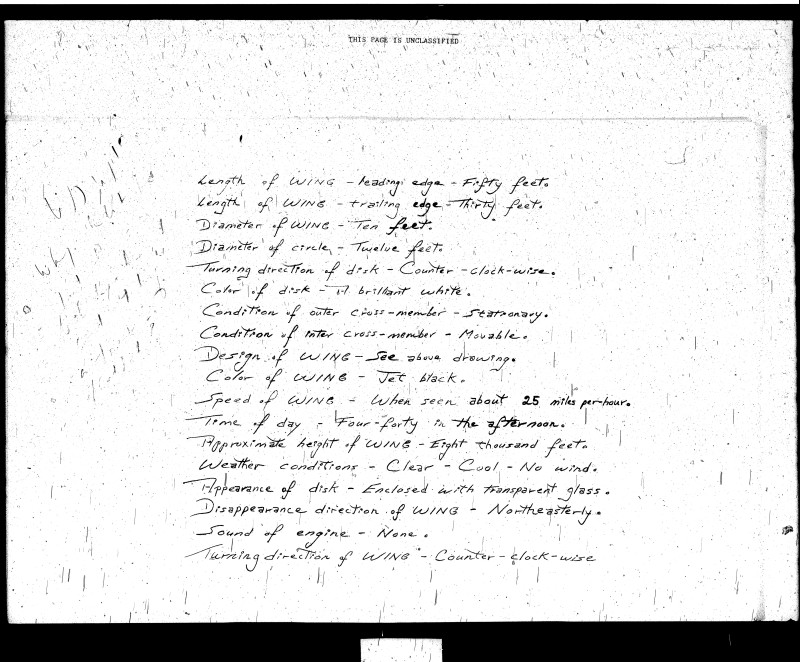 THIS PAGE IS UNCLASSIFIED
Length of WING - leading edge - Fifty feet.
Length of WING - trailing edge - Thirty feet.
Diameter of WING - Ten feet.
Diameter of circle - Twelve feet.
Turning direction of disk - Counter-clock-wise.
Color of disk - A brilliant white.
Condition of outer cross-member - Stationary.
Condition of inter cross-member - Movable.
Design of WING - See above drawing.
Color of WING - Jet black.
Speed of WING - When seen about 25 miles per-hour.
Time of day - Four-forty in the afternoon.
Approximate height of WING - Eight thousand feet.
Weather conditions - Clear - Cool - No wind.
Appearance of disk - Enclosed with transparent glass.
Disappearance direction of WING - Northeasterly.
Sound of engine - None.
Turning direction of WING - Counter-clock-wise